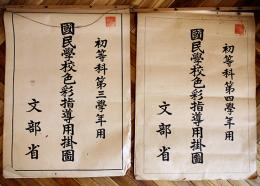 初等科第三學年用
國民學校色彩指導用掛圖
文部省
初等科第四學年用
國民學校色彩指導用掛圖
文部省